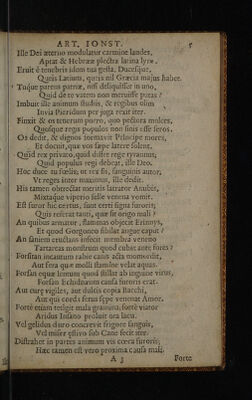 ART. IONST. 5
Ille Dei æterno modulatur carmine landes,
Aptat & Hebrææ plectra latina lyræ.
Eruit è tenebris idem tua gesta, Ducesque,
Quîs Latium, queis nil Græcia majus habet.
Tuque parens patriæ, nisi desquisset in uno,
Quid de te vatem non meruisse putas?
Imbuit ille animum studiis, & regibus olim
Invia Pieridum per juga rexit iter.
Finxit & os tenerum puero, quo pectora mulces,
Quosque regis populos non finis esse feros.
Os dedit, & dignos formavit Principe mores,
Et docuit, quæ vos sæpe latere solent.
Quid rex privato, quid differt rege tyrannus,
Quid populus regi debeat, ille Deo.
Hoc duce tu fœlix, ut rex sis, sanguinis autor,
Ut reges inter maximus, ille dedit.
His tamen obtrectat meritis latrator Anubis,
Mixtaque vipereo felle venena vomit.
Est furor hic certus, sunt certi signa furoris;
Quis referat tanti, quæ sit origo mali?
An quibus armatur, flammas objecit Erinnys,
Et quod Gorgoneo sibilat angue caput?
An saniem eructans infecit membra veneno
Tartarea monstrum quod cubat ante fores?
Forsitan incautum rabie canis acta momordit,
Aut fera quæ molli flamine velat aquas.
Forsan equæ lentum quod stillat ab inguine virus,
Forsan Echidnæum causa furoris erat.
Aut curæ vigiles, aut dulcis copia Bacchi,
Aut qui corda ferus sæpe venenat Amor.
Forte etiam tetigit mala gramina, forte viator
Aridus Insano proluit ora lacu.
Vel gelidus duro concrevit frigore sanguis,
Vel miser estivo sub Cane secit iter.
Distrahet in partes animum vis cœca furoris;
Hæc tamen est vero proxima causa mali.
A 3 Forte